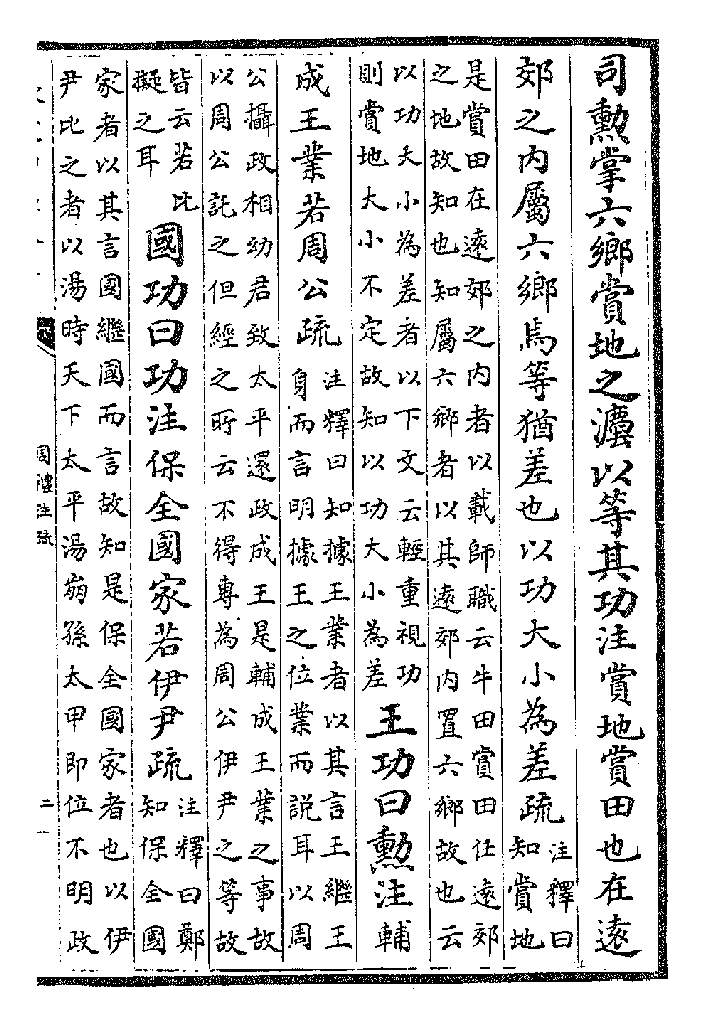 司勲掌六鄉賞地之灋以等其功注賞地賞田也在逺
郊之内屬六鄉焉等猶差也以功大小為差疏注釋曰
知賞地
是賞田在逺郊之内者以載師職云牛田賞田任逺郊
之地故知也知屬六鄉者以其逺郊内置六鄉故也云
以功大小為差者以下文云輕重視功
則賞地大小不定故知以功大小為差王功曰勲注輔
成王業若周公疏注釋曰知據王業者以其言王繼王
身而言明據王之位業而説耳以周
公攝政相幼君致太平還政成王是輔成王業之事故
以周公託之但經之所云不得專為周公伊尹之等故
皆云若比
擬之耳國功曰功注保全國家若伊尹疏注釋曰鄭
知保全國
家者以其言國繼國而言故知是保全國家者也以伊
尹比之者以湯時天下太平湯崩孫太甲即位不明政
周禮注疏
二